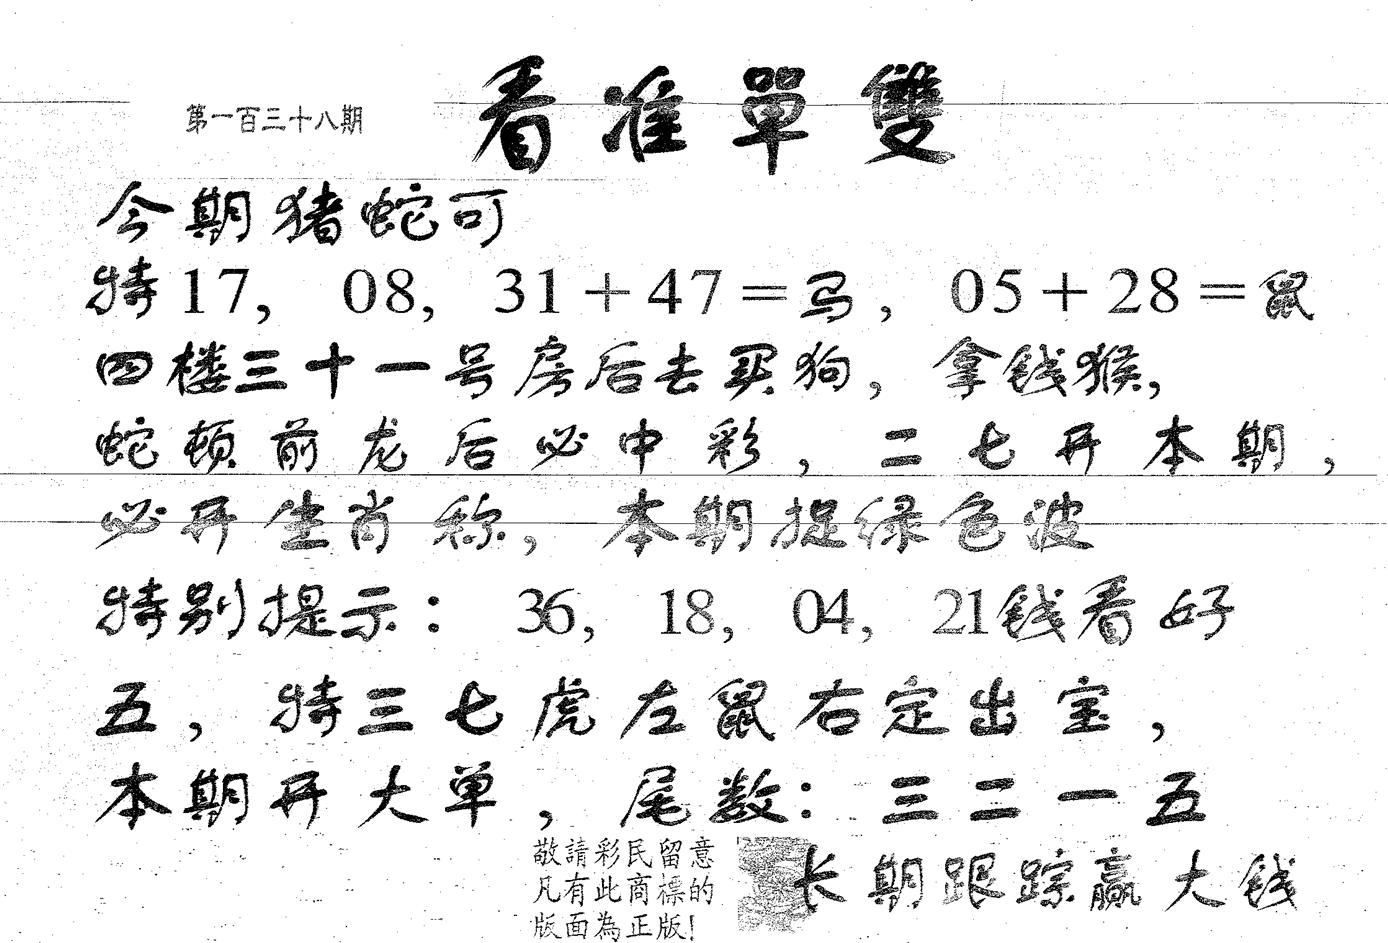 第一百三十八期
看准單雙
今期猪蛇可
特17, 08, 31+47=马, 05+28=鼠
四楼三十一号房后去买狗,拿钱猴,
蛇顿前龙后必中彩,二七开本期,
必开生肖称,本期捉绿色波
特别提示: 36, 18, 04, 21钱看好
五,特三七虎左鼠右定出宝,
本期开大单,尾数:三二一五
敬請彩民留意
凡有此商標的
版面為正版!
长期跟踪赢大钱